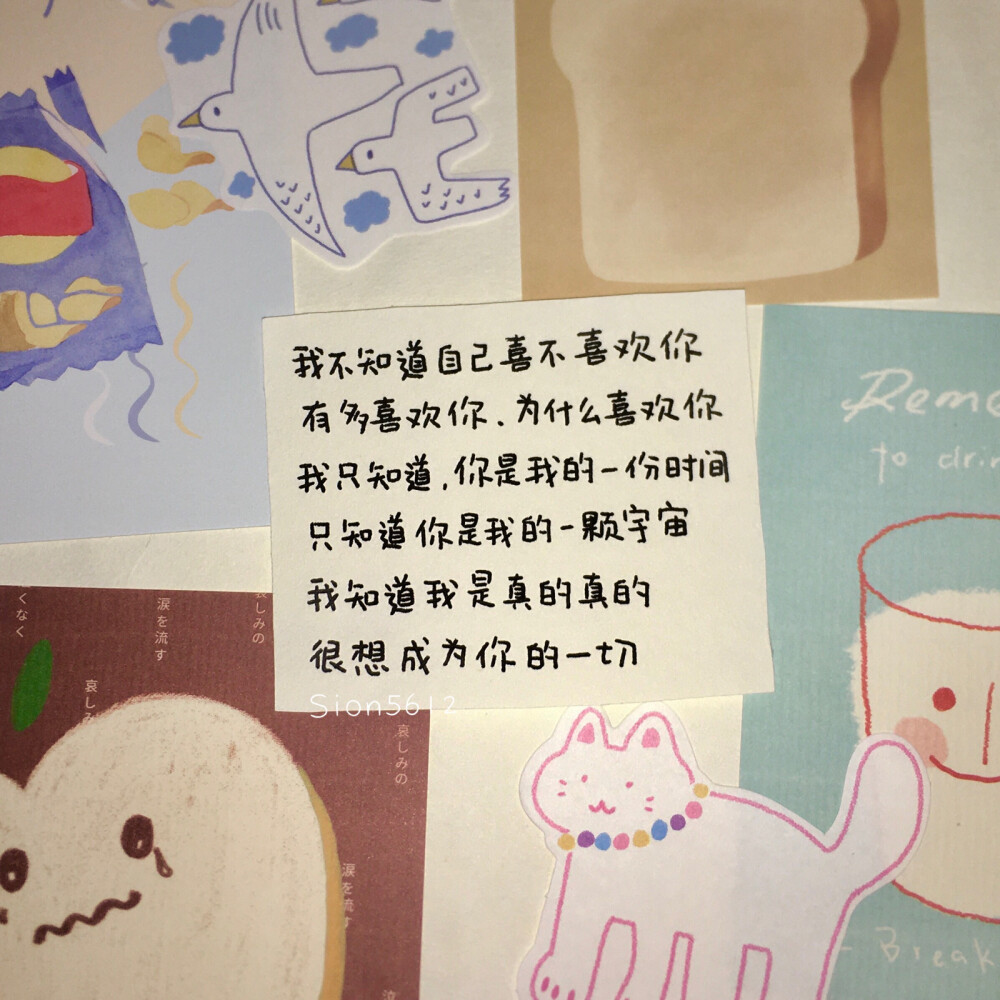 我不知道自己喜不喜欢你
有多喜欢你、为什么喜欢你
我只知道,你是我的一份时间
只知道你是我的一颗宇宙
我知道我是真的真的
很想成为你的一切
Sion5612
to
Break
くなく
涙を流す
哀しみの
哀しみ
哀しみの
涙を流す